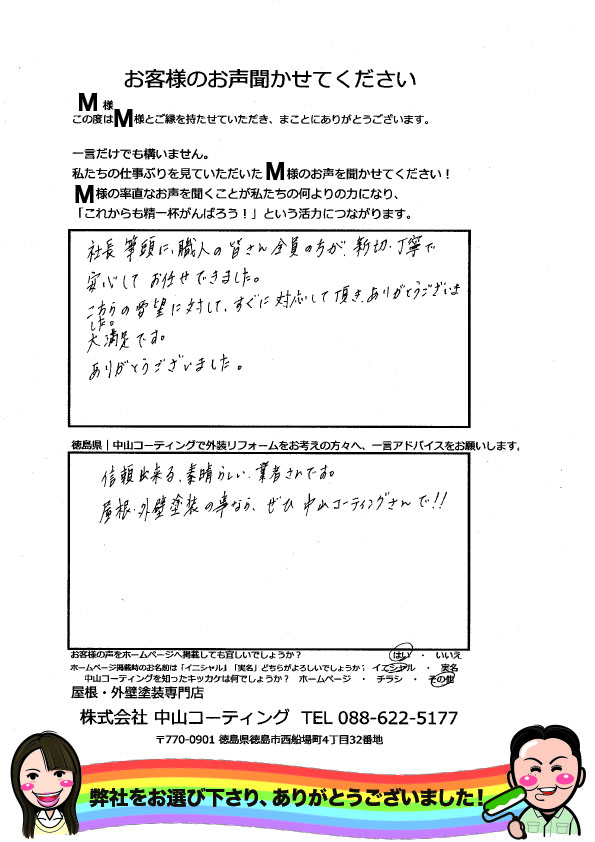 お客様のお声聞かせてください
M 様
この度はM様とご縁を持たせていただき、まことにありがとうございます。
一言だけでも構いません。
私たちの仕事ぶりを見ていただいたM様のお声を聞かせてください！
M様の率直なお声を聞くことが私たちの何よりの力になり、
「これからも精一杯がんばろう！」という活力につながります。
社長 筆頭に、職人の皆さん全員の方が、親切・丁寧で
安心して お任せできました。
こちらの要望に対して、すぐに対応して頂き、ありがとうございま
した。
大満足です。
ありがとうございました。
徳島県｜中山コーティングで外装リフォームをお考えの方々へ、一言アドバイスをお願いします。
信頼出来る、素晴らしい業者さんです。
屋根・外壁塗装の事なら、ぜひ 中山コーティングさんで!!
お客様の声をホームページへ掲載しても宜しいでしょうか？ はい ・ いいえ
ホームページ掲載時のお名前は「イニシャル」「実名」どちらがよろしいでしょうか？ イニシャル ・ 実名
中山コーティングを知ったキッカケは何でしょうか？ ホームページ ・ チラシ ・ その他
屋根・外壁塗装専門店
株式会社 中山コーティング TEL 088-622-5177
〒770-0901 徳島県徳島市西船場町4丁目32番地
弊社をお選び下さり、ありがとうございました！